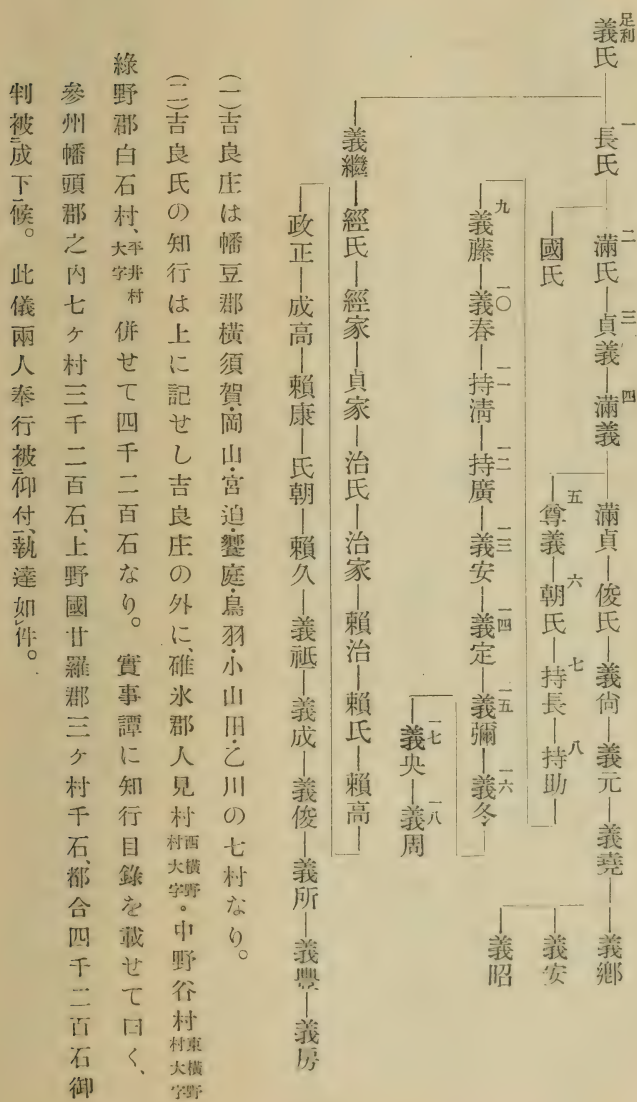 足利
義氏―一長氏―二滿氏―三貞義―四滿義―滿貞―俊氏―義尙―義元―義堯―義鄕
義安
義昭
國氏
五尊義―六朝氏―七持長―八持助
九義藤―一〇義春―一一持淸―一二持廣―一三義安―一四義定―一五義彌―一六義冬
一七義央―一八義周
義繼―經氏―經家―貞家―治氏―治家―賴治―賴氏―賴高
政正―成高―賴康―氏朝―賴久―義祗―義成―義俊―義所―義豐―義房
(一)吉良庄は幡豆郡橫須賀・岡山・宮迫・饗庭・鳥羽・小山田・乙川の七村なり。
(二)吉良氏の知行は上に記せし吉良庄の外に、碓氷郡人見村西橫野村大字。中野谷村東橫野村大字
綠野郡白石村、平井村大字 併せて四千二百石なり。實事譚に知行目錄を載せて曰く、
參州幡頭郡之內七ヶ村三千二百石、上野國甘羅郡三ヶ村千石、都合四千二百石御
判被㆓成下㆒候。此儀兩人奉行被㆓仰付㆒、執達如㆑件。